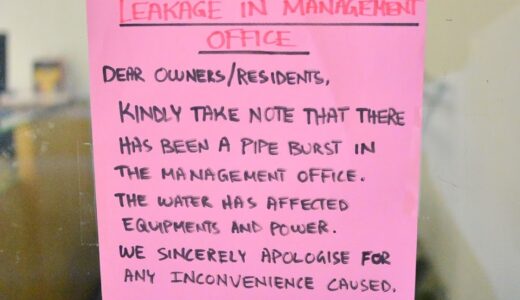 LEAKAGE IN MANAGEMENT
OFFICE
DEAR OWNERS/RESIDENTS,
KINDLY TAKE NOTE THAT THERE
HAS BEEN A PIPE BURST IN
THE MANAGEMENT OFFICE.
THE WATER HAS AFFECTED
EQUIPMENTS AND POWER.
WE SINCERELY APOLOGISE FOR
ANY INCONVENIENCE CAUSED.